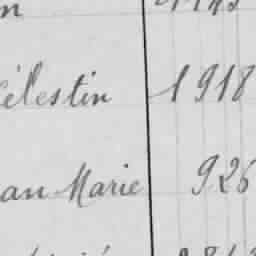 élestin 1918
an Marie 926